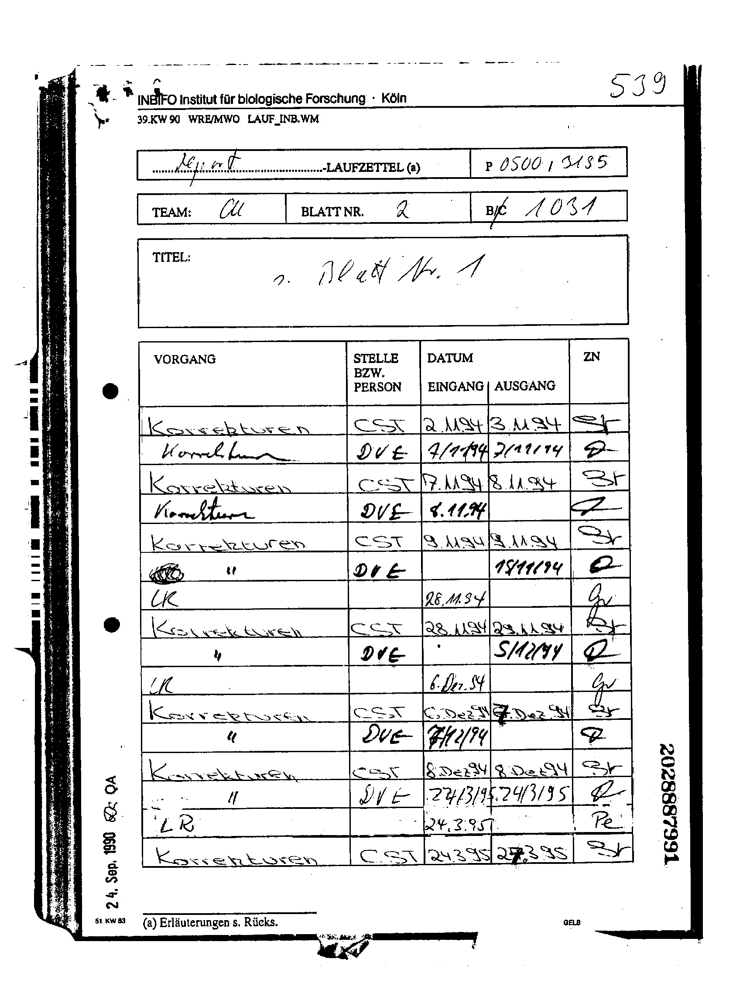 539
INBIFO Institut für biologische Forschung · Köln
39.KW 90 WRE/MWO LAUF_INB.WM
Report -LAUFZETTEL (a) P 0500 / 3135
TEAM: CU BLATT NR. 2 B/C 1031
TITEL: s. Blatt Nr. 1
VORGANG STELLE BZW. PERSON DATUM EINGANG AUSGANG ZN
Korrekturen CST 2.11.94 3.11.94 Br
Korrekturen DVE 7/11/94
Korrekturen CST 7.11.94 8.11.94 Br
Korrekturen DVE 8.11.94
Korrekturen CST 9.11.94 9.11.94 Br
" DVE 15/11/94
LR 28.11.94 Gr
Korrekturen CST 28.11.94 29.11.94 Br
" DVE 5/12/94
LR 6.Dez.94 Gr
Korrekturen CST 6.Dez 94 7.Dez 94 Br
" DVE 7/12/94
Korrekturen CST 8.Dez 94 8.Dez 94 Br
" DVE 24/3/95
LR 24.3.95 Pe
Korrekturen CST 24.3.95 27.3.95 Br
(a) Erläuterungen s. Rücks.
GELB
51 KW 83
24. Sep. 1990 QA
2028887991